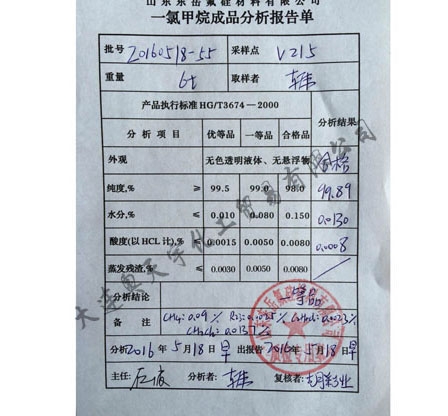 山东东岳氟硅材料有限公司
一氯甲烷成品分析报告单
批号 20160518-55 采样点 V215
重量 6t 取样者
产品执行标准 HG/T3674—2000 分析结果
分析项目 优等品 一等品 合格品
外观 无色透明液体、无悬浮物
纯度,% ≥ 99.5 99.0 98.0 99.89
水分,% ≤ 0.010 0.080 0.150 0.0130
酸度(以HCL计),% ≤ 0.0015 0.0050 0.0080 0.0008
蒸发残渣,% ≤ 0.0030 0.0050 0.0080
分析结论 一等品
备注 CH4: 0.09%
分析 2016年5月18日早 出报告 2016年5月18日早
主任: 分析者: 复核者: